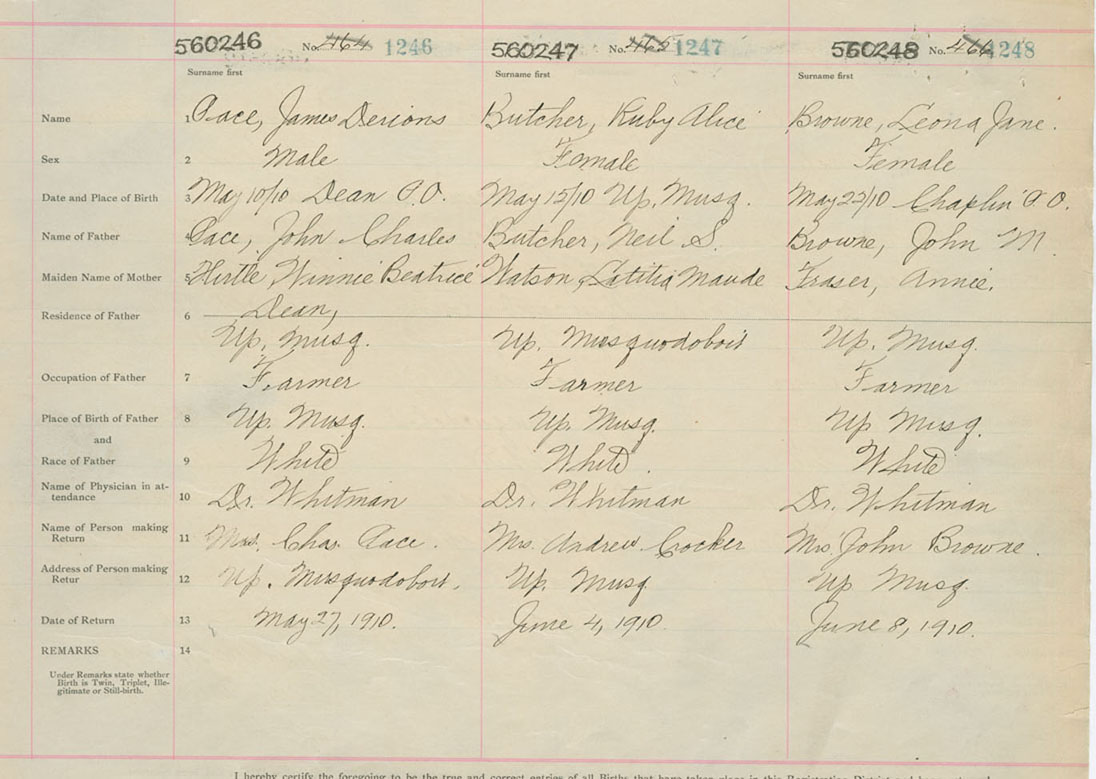 560246 No. 464 1246 560247 No. 465 1247 560248 No. 466 1248
Surname first Surname first Surname first
Name 1 Pace, James Derions Butcher, Ruby Alice Browne, Leona Jane.
Sex 2 Male Female Female
Date and Place of Birth 3 May 10/10 Dean P.O. May 15/10 Up. Musq. May 22/10 Chaplin P.O.
Name of Father 4 Pace, John Charles Butcher, Neil S. Browne, John M
Maiden Name of Mother 5 Hirtle, Winnie Beatrice Watson, Latitia Maude Fraser, Annie.
Residence of Father 6 Dean,
Up. Musq. Up. Musquodoboit Up. Musq.
Occupation of Father 7 Farmer Farmer Farmer
Place of Birth of Father 8 Up. Musq. Up. Musq. Up Musq.
and
Race of Father 9 White White. White
Name of Physician in at-
tendance 10 Dr. Whitman Dr. Whitman Dr. Whitman
Name of Person making
Return 11 Mrs. Chas. Pace. Mrs. Andrew Crocker Mrs. John Browne.
Address of Person making
Retur 12 Up. Musquodoboit. Up. Musq. Up Musq.
Date of Return 13 May 27, 1910. June 4, 1910. June 8, 1910.
REMARKS 14
Under Remarks state whether
Birth is Twin, Triplet, Ille-
gitimate or Still-birth.
I hereby certify the foregoing to be the true and correct entries of all Births that have taken place in this Registration District